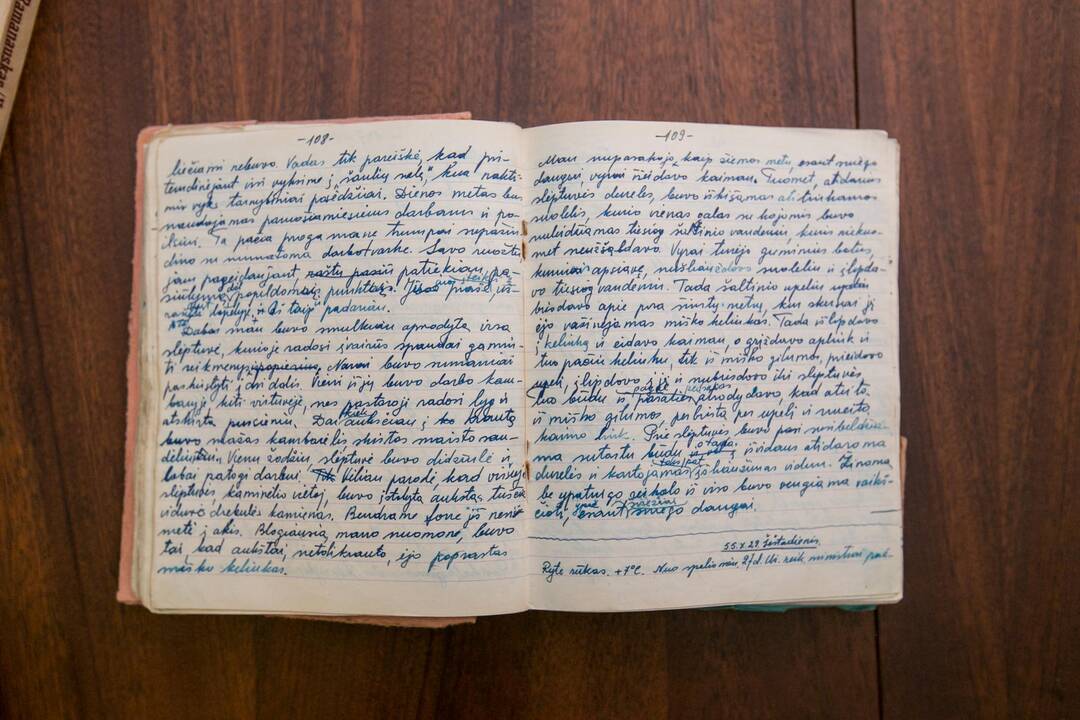 Ramanauskas
-108-
liečiami nebuvo. Vadas tik pareiškė, kad pri-
temdinėjant visi vyksime į „šaulių salę", kur nakti-
mis vyks tarnybiniai posėdžiai. Dienos metas bus
naudojamas paruošiamiesiems darbams ir po-
ilsiui. Ta pačia proga mane trumpai
dino su numatoma darbotvarke. Savo ruožtu,
jam pageidaujant, patiekiau
papildomais punktais. prašė
ir aš taip padariau.
Dabar man buvo smulkiau aprodyta visa
slėptuvė, kurioje radosi įvairūs spaudai gamin-
ti reikmenys. Nariai buvo sumaniai
paskirstyti į dvi dalis. Vieni iš jų buvo darbo kam-
baryje, kiti virtuvėje, nes pastaroji radosi lyg ir
atskirta pusieniu. Dar aukščiau
buvo mažas kambarėlis skirtas maisto san-
dėliui. Vienu žodžiu slėptuvė buvo didžiulė ir
labai patogi darbui. Vėliau parodė, kad viršuje
slėptuvės, kaminėlio vietoj, buvo įstatytas aukštas, tuščia-
viduris drebulės kamienas. Bendrame fone jis nesi-
metė į akis. Blogiausia, mano nuomone, buvo
tai, kad aukštai, netoli krauto, ėjo paprastas
miško keliukas.
-109-
Man nupasakojo, kaip žiemos metu, esant sniego
dangai, vyrai išeidavo kaiman. Tuomet, atidarius
slėptuvės dureles, buvo iškišamas atitinkamas
suolelis, kurio vienas galas su kojomis buvo
nuleidžiamas tiesiog šaltinio vandenin, kuris niekuo-
met neužšaldavo. Vyrai turėjo guminius batus,
kuriuos apsiavę, nusileisdavo suoleliu ir išlipda-
vo tiesiog vandenin. Tada šaltinio upeliu
brisdavo apie porą šimtų metrų, kur skersai jį
ėjo važinėjamas miško keliukas. Tada išlipdavo
į keliuką ir eidavo kaiman, o grįždavo aplink ir
tuo pačiu keliuku, tik iš miško gilumos, prieidavo
upelį, įlipdavo į jį ir nubrisdavo iki slėptuvės
Tuo būdu iš pašalies atrodydavo, kad ateita
iš miško gilumos, perbrista per upelį ir nueita
kaimo link. Prie slėptuvės buvo pasinaudojama
ma sutartu būdu iš vidaus atidaroma
durelės ir kartojamas išlindimas vidun. Žinoma,
be ypatingo reikalo iš viso buvo vengiama vaikš-
čioti, esant sniego dangai.
55.X.29. Šeštadienis.
Ryte rūkas. +7°C. Nuo spalio mėn. 27 d.